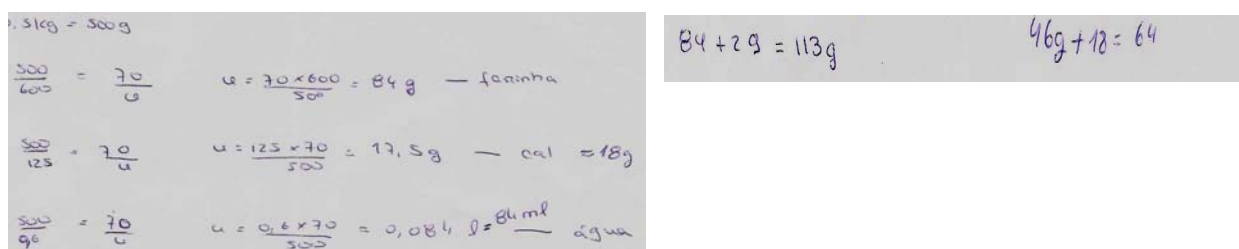 0,5kg = 500g
500/600 = 70/u u = 70×600/500 = 84 g — farinha
500/125 = 70/u u = 125×70/500 = 17,5g — cal ≈18g
500/96 = 70/u u = 0,6×70/500 = 0,084 l = 84ml — água
84 + 29 = 113g
46g + 18 = 64